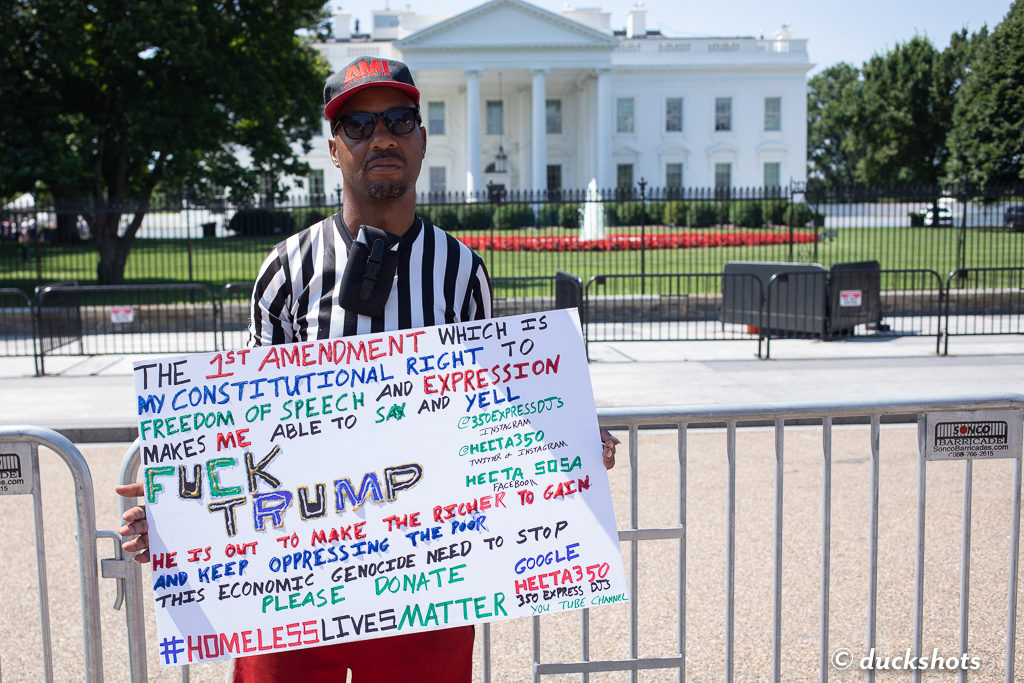 AMI
THE 1ST AMENDMENT WHICH IS
MY CONSTITUTIONAL RIGHT TO
FREEDOM OF SPEECH AND EXPRESSION
MAKES ME ABLE TO SAY AND YELL
FUCK
TRUMP
@350EXPRESSDJs
INSTAGRAM
@HECTA350
TWITTER & INSTAGRAM
HECTA SOSA
FACEBOOK
HE IS OUT TO MAKE THE RICHER TO GAIN
AND KEEP OPPRESSING THE POOR
THIS ECONOMIC GENOCIDE NEED TO STOP
PLEASE DONATE
#HOMELESSLIVESMATTER
GOOGLE
HECTA350
350 EXPRESS DJS
YOU TUBE CHANNEL
SONCO
BARRICADE
SoncoBarricades.com
© duckshots